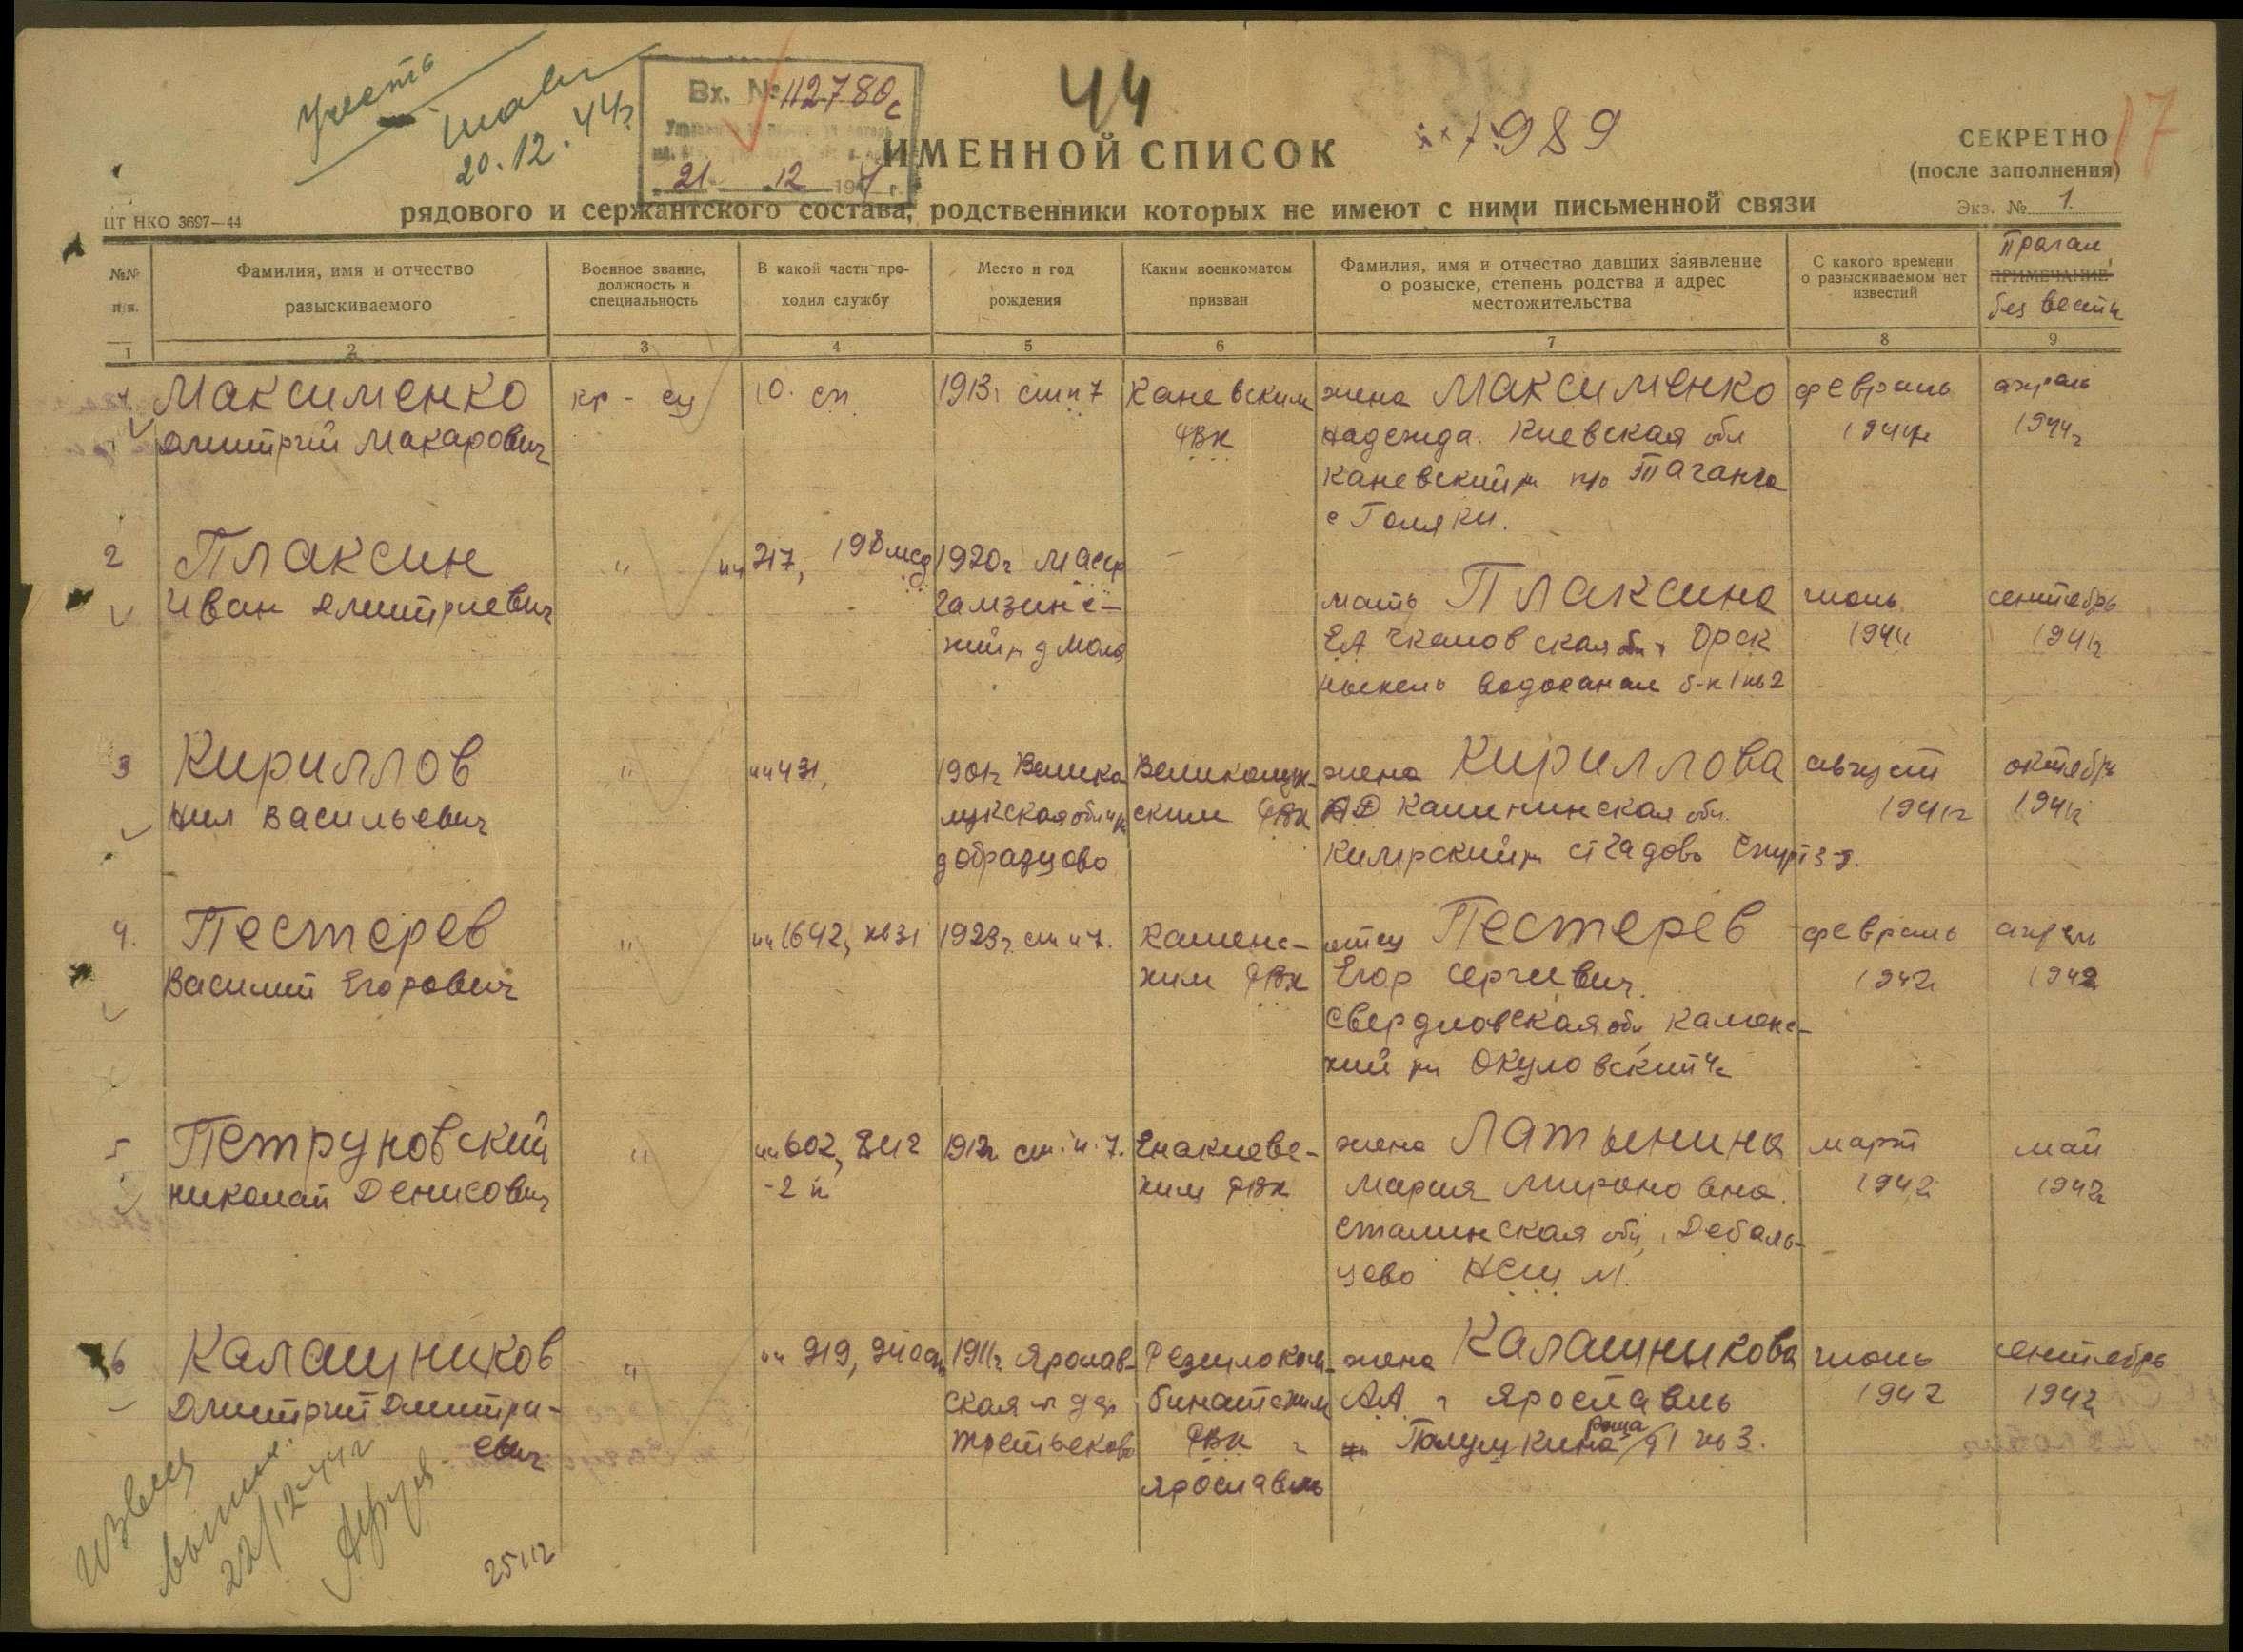 Учесть
20.12.44г.
Вх. № 112780с
21 12 194 г.
44
7989
17
ИМЕННОЙ СПИСОК
СЕКРЕТНО
(после заполнения)
Экз. № 1.
ЦТ НКО 3697—44
рядового и сержантского состава, родственники которых не имеют с ними письменной связи
№№ п/п.
Фамилия, имя и отчество разыскиваемого
Военное звание, должность и специальность
В какой части проходил службу
Место и год рождения
Каким военкоматом призван
Фамилия, имя и отчество давших заявление о розыске, степень родства и адрес местожительства
С какого времени о разыскиваемом нет известий
Пропал
ПРИМЕЧАНИЕ
без вести
1 2 3 4 5 6 7 8 9
Максименко кр-ец 10. сп 1913г ст и 7 Каневским жена Максименко февраль апрель
Дмитрий Макарович РВК Надежда. Киевская обл 1944г 1944г
Каневский рн п/о Таганча
с Голяки.
2 Плаксин " пп 217, 198 мсд 1920г Маср – мать Плаксина июнь сентябрь
Иван Дмитриевич Гамзинс- ЕА Чкаловская обл г Орск 1941 1941г
кий р д Мола поселк Водоканал б-к 1 кв 2
3 Кириллов " пп 431, 1901г Велико Великолук- жена Кириллова август октябрь
Нил Васильевич лукская обл ским РВК АД Калининская обл. 1941г 1941г
д Образцово Кимрский рн ст Чадово Спирт з-д.
4. Пестерев " пп 1642, кв 31 1923г. ст и 7. Каменс- отец Пестерев февраль апрель
Василий Егорович ким РВК Егор Сергеевич. 1942г 1942
Свердловская обл, Каменс-
кий рн Окуловский с/с
5 Петруновский " пп 602, 1912г ст. и. 7. Енакиевс- жена Латынина март май
Николай Денисович -2 й ким РВК Мария Мироновна. 1942г 1942г
Сталинская обл, Дебаль-
цево
6 Калашников " пп 919, 1911г Ярослав- Резиноком- жена Калашникова июнь сентябрь
Дмитрий Дмитри- ская дер бинатским АА г Ярославль 1942 1942г
евич Третьяково РВК г Полушкина роща д 1 кв 3.
Ярославль
Извещ
22/12-44г
25/12